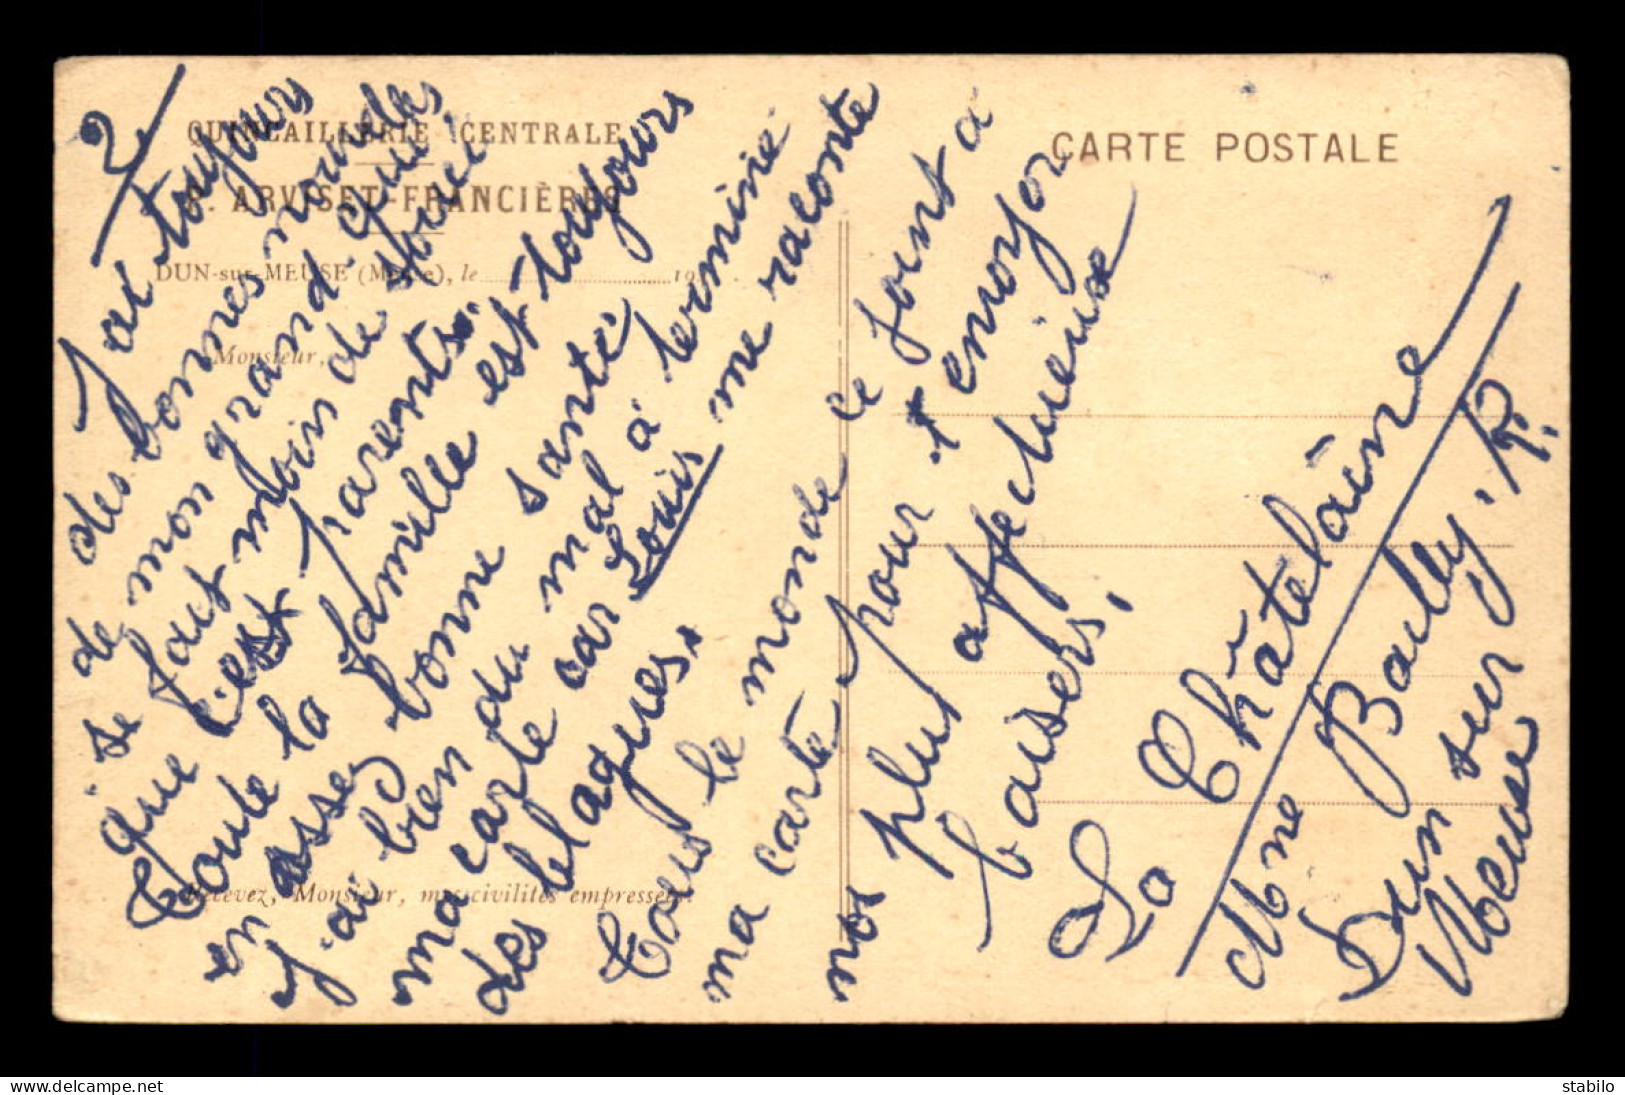 QUINCAILLERIE CENTRALE
P. ARVISET-FRANCIÈRES
DUN-sur-MEUSE (Meuse), le 19
Monsieur,
Recevez, Monsieur, mes civilités empressées.
CARTE POSTALE
2
J'ai toujours
des bonnes nouvelles
de mon grand qui
se fait moins de souci
que c'est parents.
Toute la famille est toujours
en assez bonne santé.
J'ai bien du mal à terminé
ma carte car Louis me raconte
des blagues.
Tous le monde ce joint a
ma carte pour t'envoyor
nos plus affectueux
baisers.
La Châtelaine
Mme Bailly. R.
Dun sur
Meuse
www.delcampe.net
stabilo